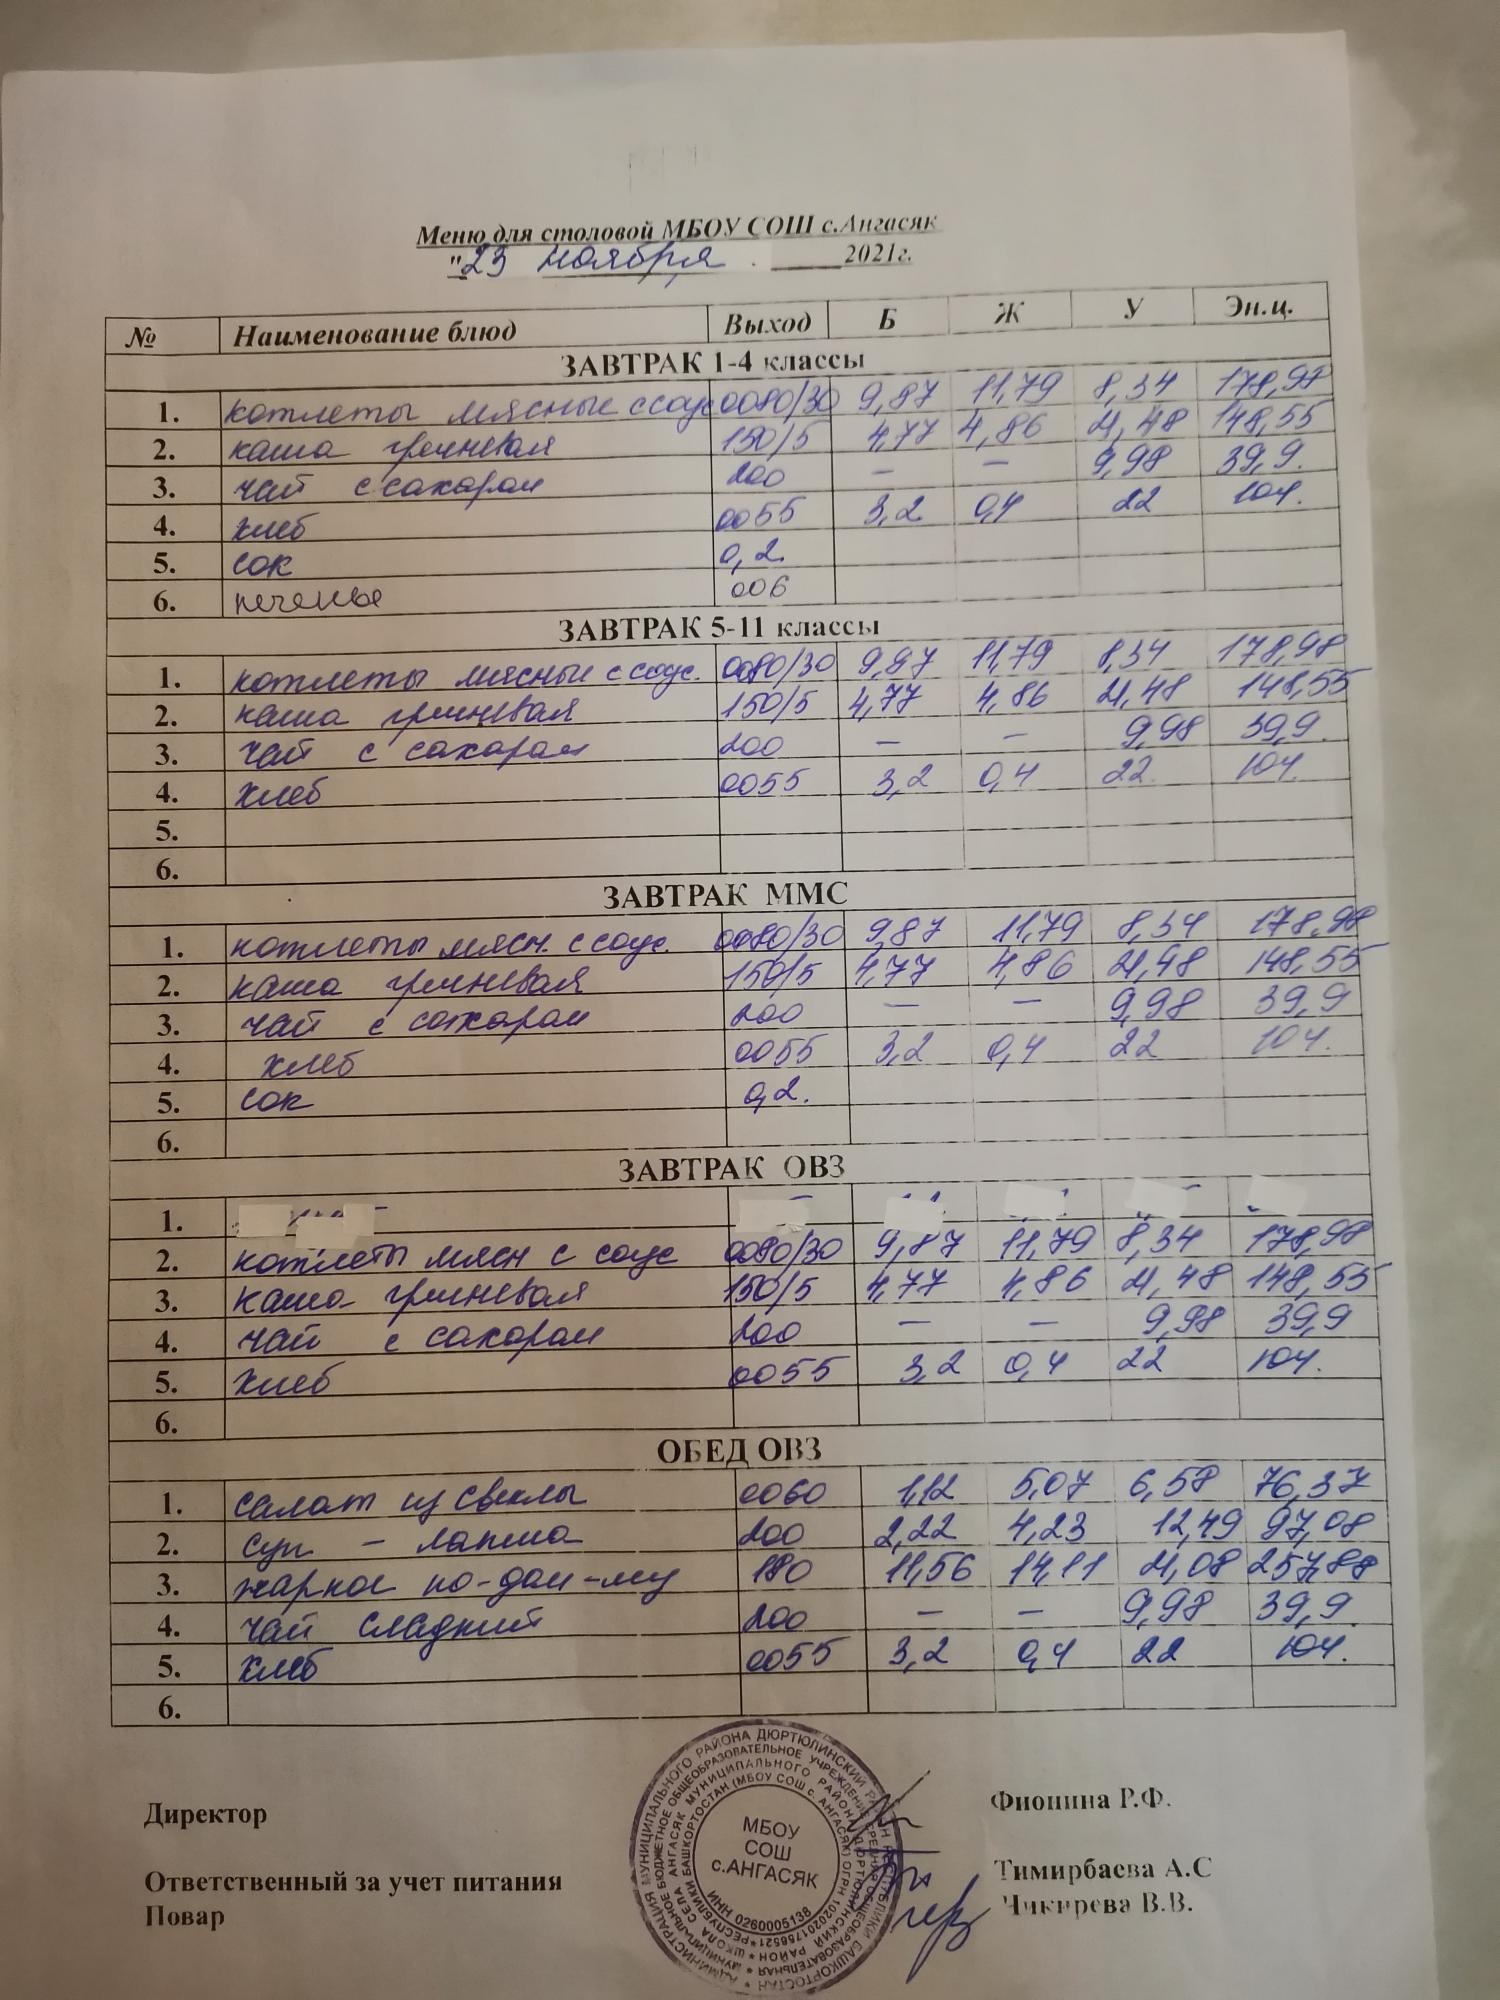 Меню для столовой МБОУ СОШ с.Ангасяк
"23 ноября . 2021г.
№ Наименование блюд Выход Б Ж У Эн.ц.
ЗАВТРАК 1-4 классы
1. котлеты мясные с соус 0080/30 9,87 11,79 8,34 178,98
2. каша гречневая 150/5 4,77 4,86 21,48 148,55
3. чай с сахаром 200 — — 9,98 39,9.
4. хлеб 0055 3,2 0,4 22 104.
5. сок 0,2.
6. печенье 006
ЗАВТРАК 5-11 классы
1. котлеты мясные с соус. 0080/30 9,87 11,79 8,34 178,98
2. каша гречневая 150/5 4,77 4,86 21,48 148,55
3. чай с сахаром 200 — — 9,98 39,9.
4. хлеб 0055 3,2 0,4 22. 104.
5.
6.
ЗАВТРАК ММС
1. котлеты мясн. с соус. 0080/30 9,87 11,79 8,34 178,98
2. каша гречневая 150/5 4,77 4,86 21,48 148,55
3. чай с сахаром 200 — — 9,98 39,9
4. хлеб 0055 3,2 0,4 22 104.
5. сок 0,2.
6.
ЗАВТРАК ОВЗ
1.
2. котлеты мясн с соус 0080/30 9,87 11,79 8,34 178,98
3. каша гречневая 150/5 4,77 4,86 21,48 148,55
4. чай с сахаром 200 — — 9,98 39,9
5. хлеб 0055 3,2 0,4 22 104.
6.
ОБЕД ОВЗ
1. салат из свеклы 0060 1,12 5,07 6,58 76,37
2. суп - лапша 200 2,22 4,23 12,49 97,08
3. жаркое по-дом-му 180 11,56 14,11 21,08 257,88
4. чай сладкий 200 — — 9,98 39,9.
5. хлеб 0055 3,2 0,4 22 104.
6.
Директор Фионина Р.Ф.
Ответственный за учет питания Тимирбаева А.С
Повар Чикирева В.В.
МБОУ
СОШ
с.АНГАСЯК
ИНН 0260005138